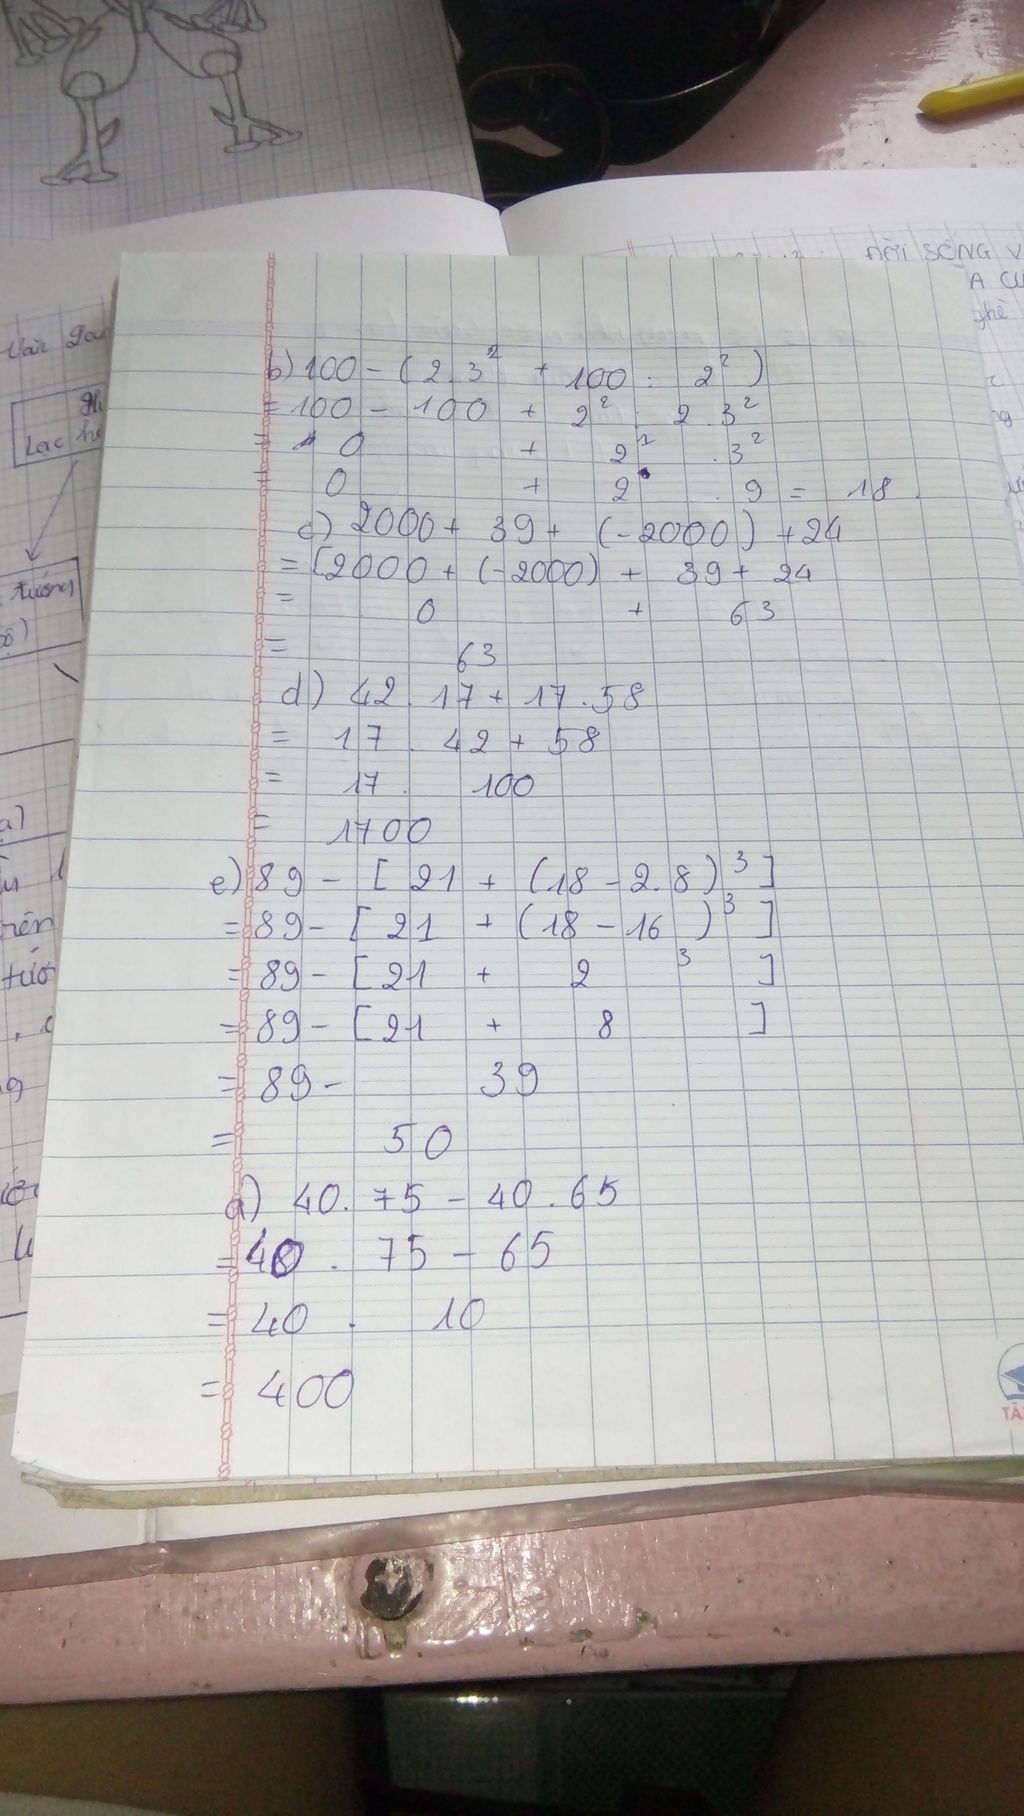 b) 100 - ( 2.3² + 100 : 2² )
= 100 - 100 + 2² : 2.3²
= 0 + 2¹ . 3²
= 0 + 2 . 9 = 18
c) 2000 + 39 + (-2000) + 24
= [2000 + (-2000) + 39 + 24
= 0 + 63
= 63
d) 42.17 + 17.58
= 17 . 42 + 58
= 17 . 100
= 1700
e) 89 - [ 21 + (18 - 2.8)³ ]
= 89 - [ 21 + (18 - 16 )³ ]
= 89 - [ 21 + 2 ³ ]
= 89 - [ 21 + 8 ]
= 89 - 39
= 50
a) 40.75 - 40.65
= 40 . 75 - 65
= 40 . 10
= 400
ĐỜI SỐNG V
A CƯ
ghề
Văn
Lạc
tướng
a)
tướ
TÂ